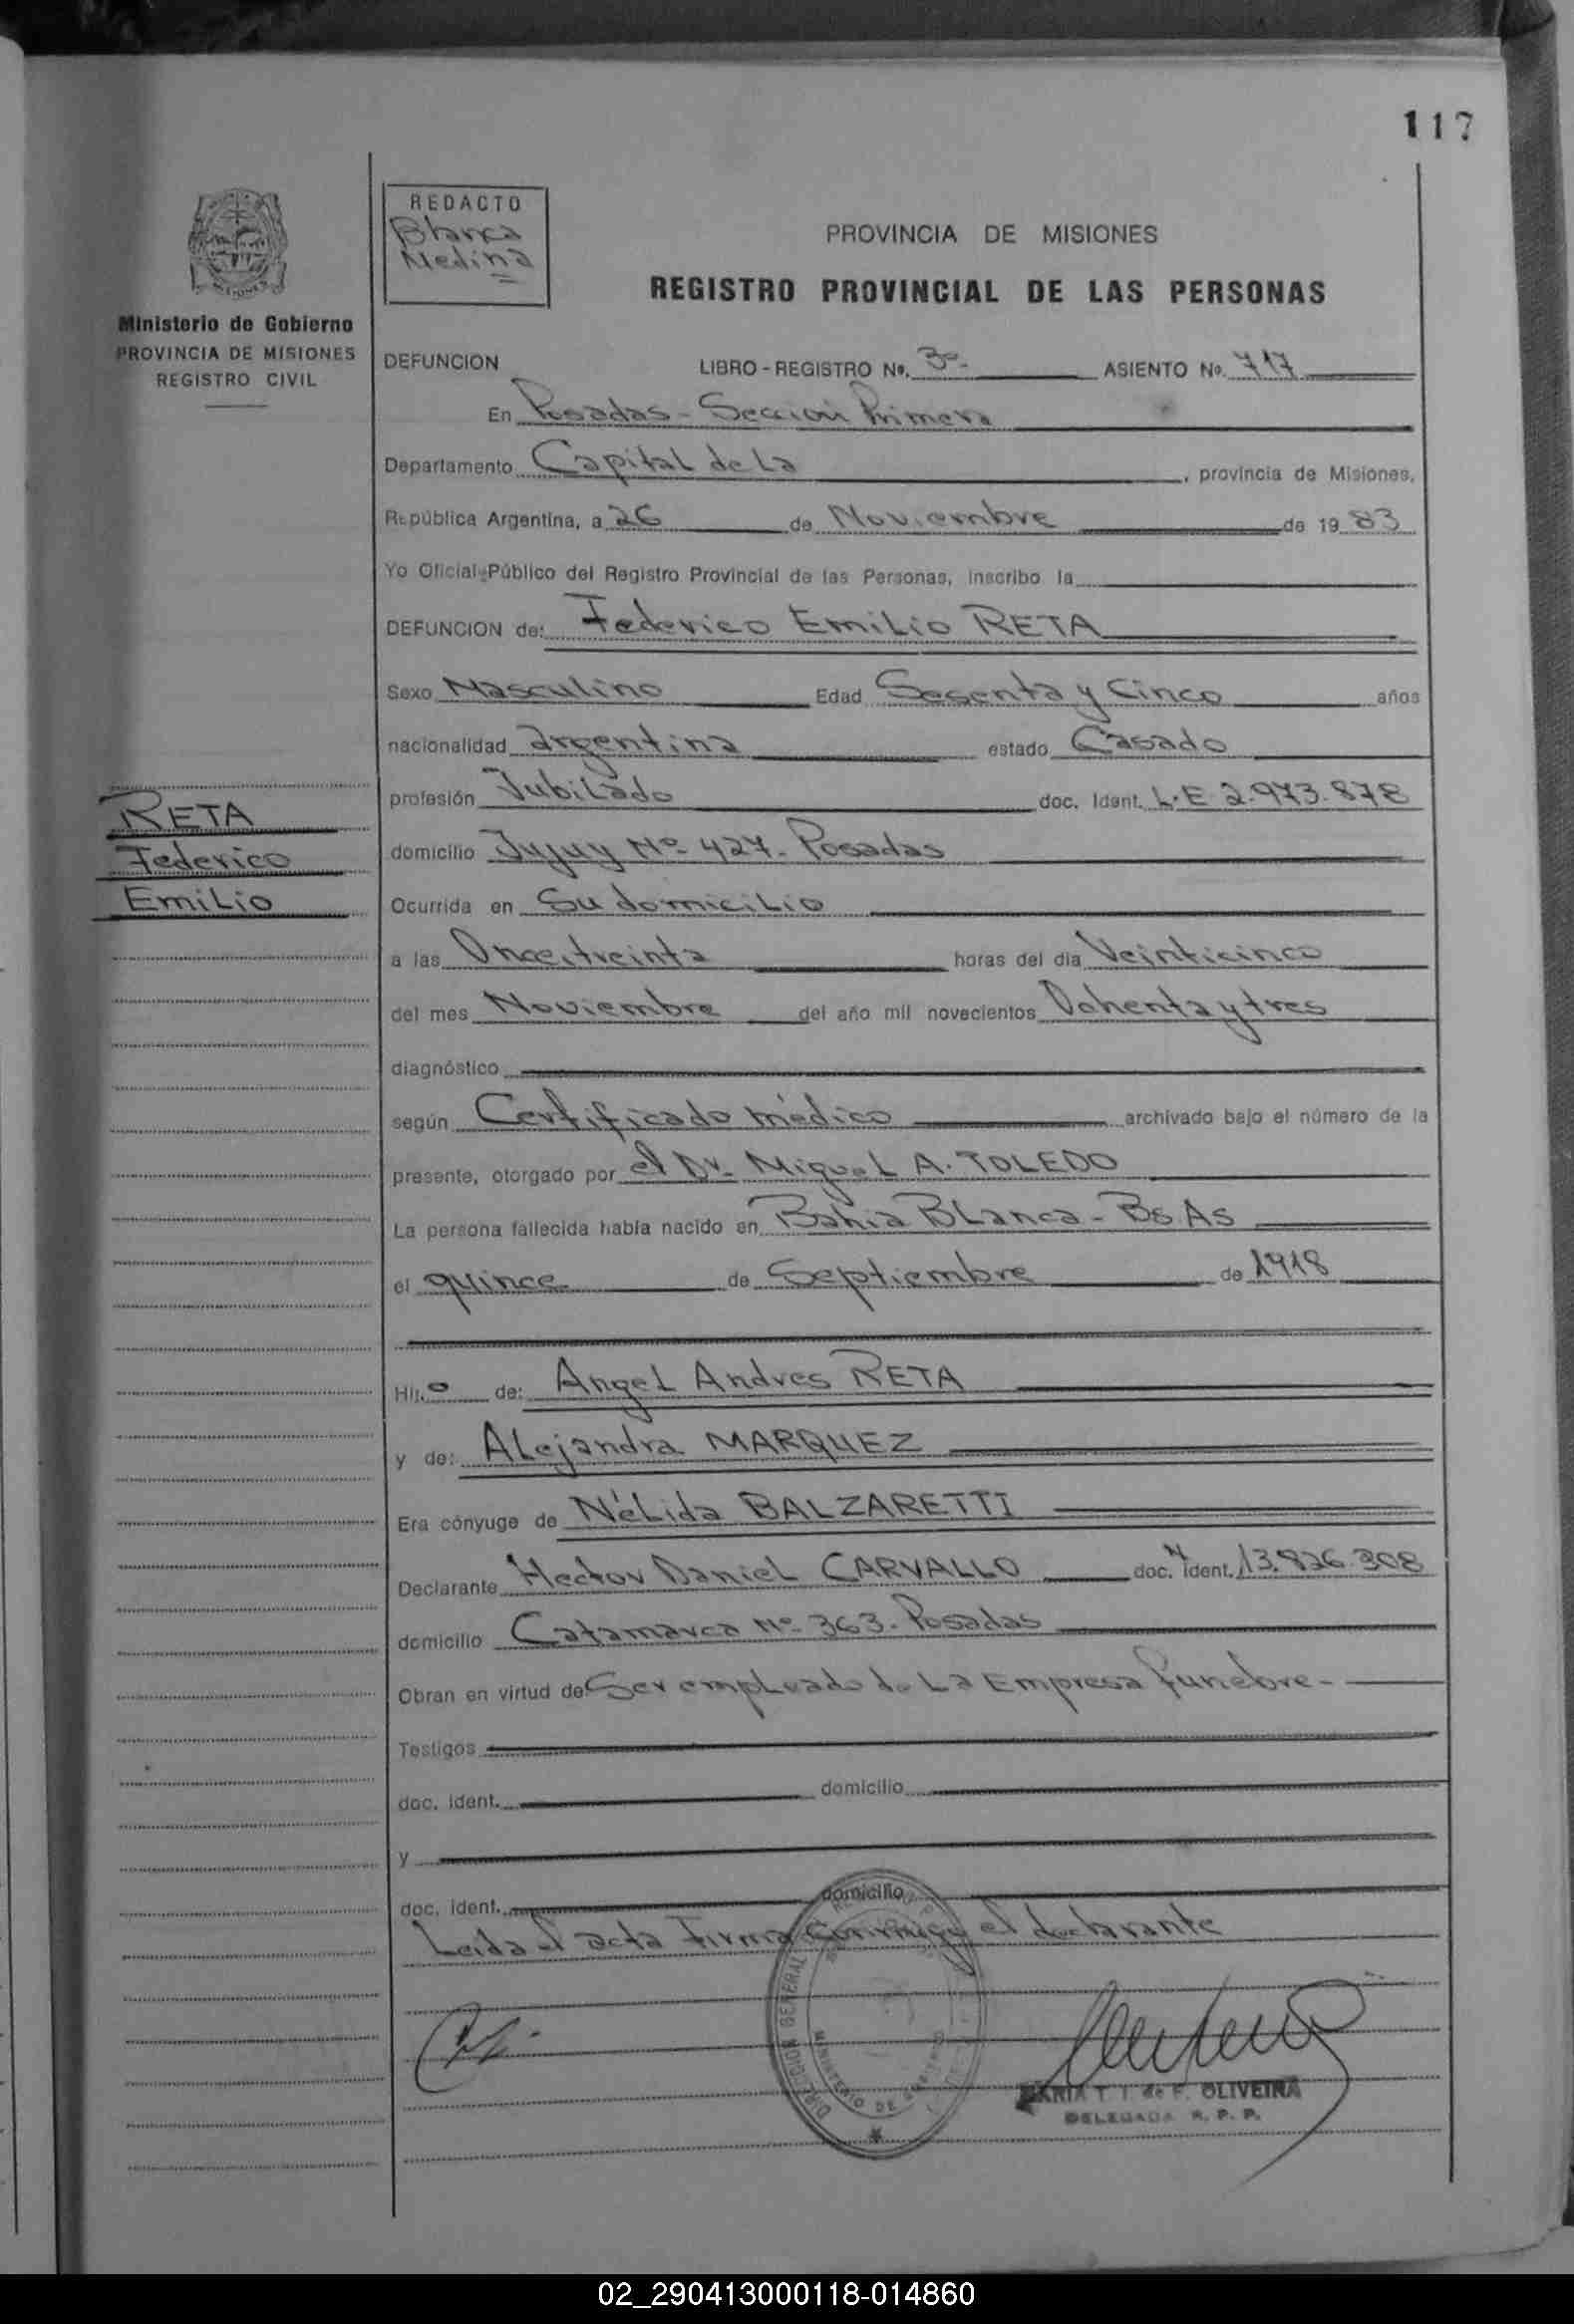 117
REDACTO
Blanca
Medina
PROVINCIA DE MISIONES
REGISTRO PROVINCIAL DE LAS PERSONAS
Ministerio de Gobierno
PROVINCIA DE MISIONES
REGISTRO CIVIL
DEFUNCION LIBRO - REGISTRO Nº. 3º- ASIENTO Nº. 717
En Posadas - Seccion Primera
Departamento Capital de La , provincia de Misiones,
República Argentina, a 26 de Noviembre de 19 83
Yo Oficial Público del Registro Provincial de las Personas, inscribo la
DEFUNCION de: Federico Emilio RETA
Sexo Masculino Edad Sesenta y Cinco años
nacionalidad argentina estado Casado
profesión Jubilado doc. Ident. L.E 2.973.878
RETA
Federico
Emilio
domicilio Jujuy Nº 427. Posadas
Ocurrida en Su domicilio
a las Once, treinta horas del día Veinticinco
del mes Noviembre del año mil novecientos Ochenta y tres
diagnóstico
según Certificado médico archivado bajo el número de la
presente, otorgado por el Dr. Miguel A. TOLEDO
La persona fallecida había nacido en Bahia Blanca - Bs As
el quince de Septiembre de 1918
Hijo de: Angel Andres RETA
y de: Alejandra MARQUEZ
Era cónyuge de Nélida BALZARETTI
Declarante Hector Daniel CARVALLO doc. N ident. 13.826.308
domicilio Catamarca Nº 363. Posadas
Obran en virtud de Ser empleado de La Empresa funebre.
Testigos
doc. ident. domicilio
y
doc. ident. domicilio
Leida el acta Firma conmigo el declarante
DIRECCION GENERAL
MINISTERIO DE GOBIERNO
MARIA T. I. de F. OLIVEIRA
DELEGADA R. P. P.
02_290413000118-014860